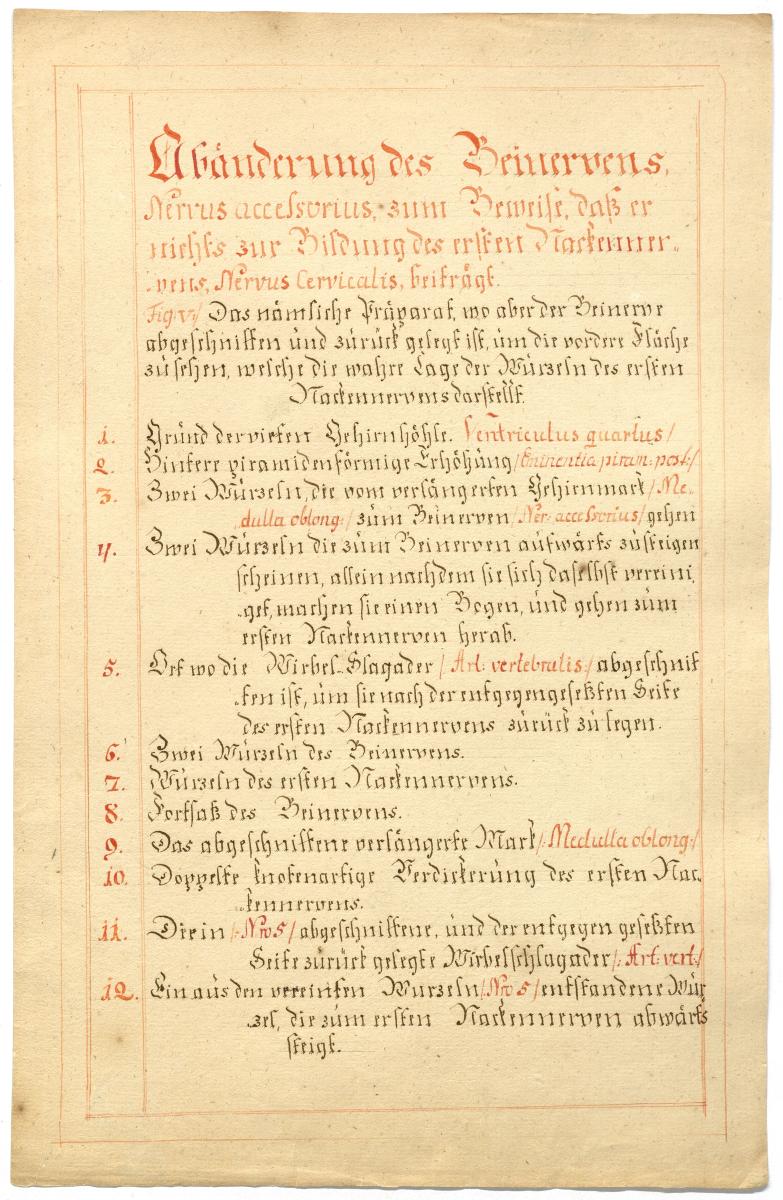 Abänderung des Beinervens,
Nervus accessorius, zum Beweise, daß er
nichts zur Bildung des ersten Nackenner„
„vens, Nervus Cervicalis, beiträgt.
Fig: V:/ Das nämliche Präparat, wo aber der Beinerve
abgeschnitten und zurück gelegt ist, um die vordere Fläche
zu sehen, welche die wahre Lage der Würzeln des ersten
Nackennervens darstellt.
1. Grund der vierten Gehirnhöhle. Ventriculus quartus/
2. Hintere piramidenförmige Erhöhung/Eminentia piram: post:/
3. Zwei Würzeln, die vom verlängerten Gehirnmark/Me„
„dulla oblong:/ zum Beinerven/Ner: accessorius/gehen
4. Zwei Würzeln die zum Beinerven aufwärts zusteigen
scheinen, allein nachdem sie sich daselbst vereini„
„get, machen sie einen Bogen, und gehen zum
ersten Nackennerven herab.
5. Ort wo die Wirbel=Slagader/Art: vertebralis:/abgeschnit
„ten ist, um sie nach der entgegengesetzten Seite
des ersten Nackennervens zurück zu legen.
6. Zwei Würzeln des Beinervens.
7. Würzeln des ersten Nackennervens.
8. Fortsatz des Beinervens.
9. Das abgeschnittene verlängerte Mark/:Medulla oblong:/
10. Doppelte knotenartige Verdickerung des ersten Nac„
„kennervens.
11. Die in/:Nro 5/abgeschnittene, und der entgegen gesetzten
Seite zurück gelegte Wirbelschlagader/:Art: vert:/
12. Ein aus den vereinten Wurzeln/Nro 5/entstandene Wür
„zel, die zum ersten Nackennerven abwärts
steigt.